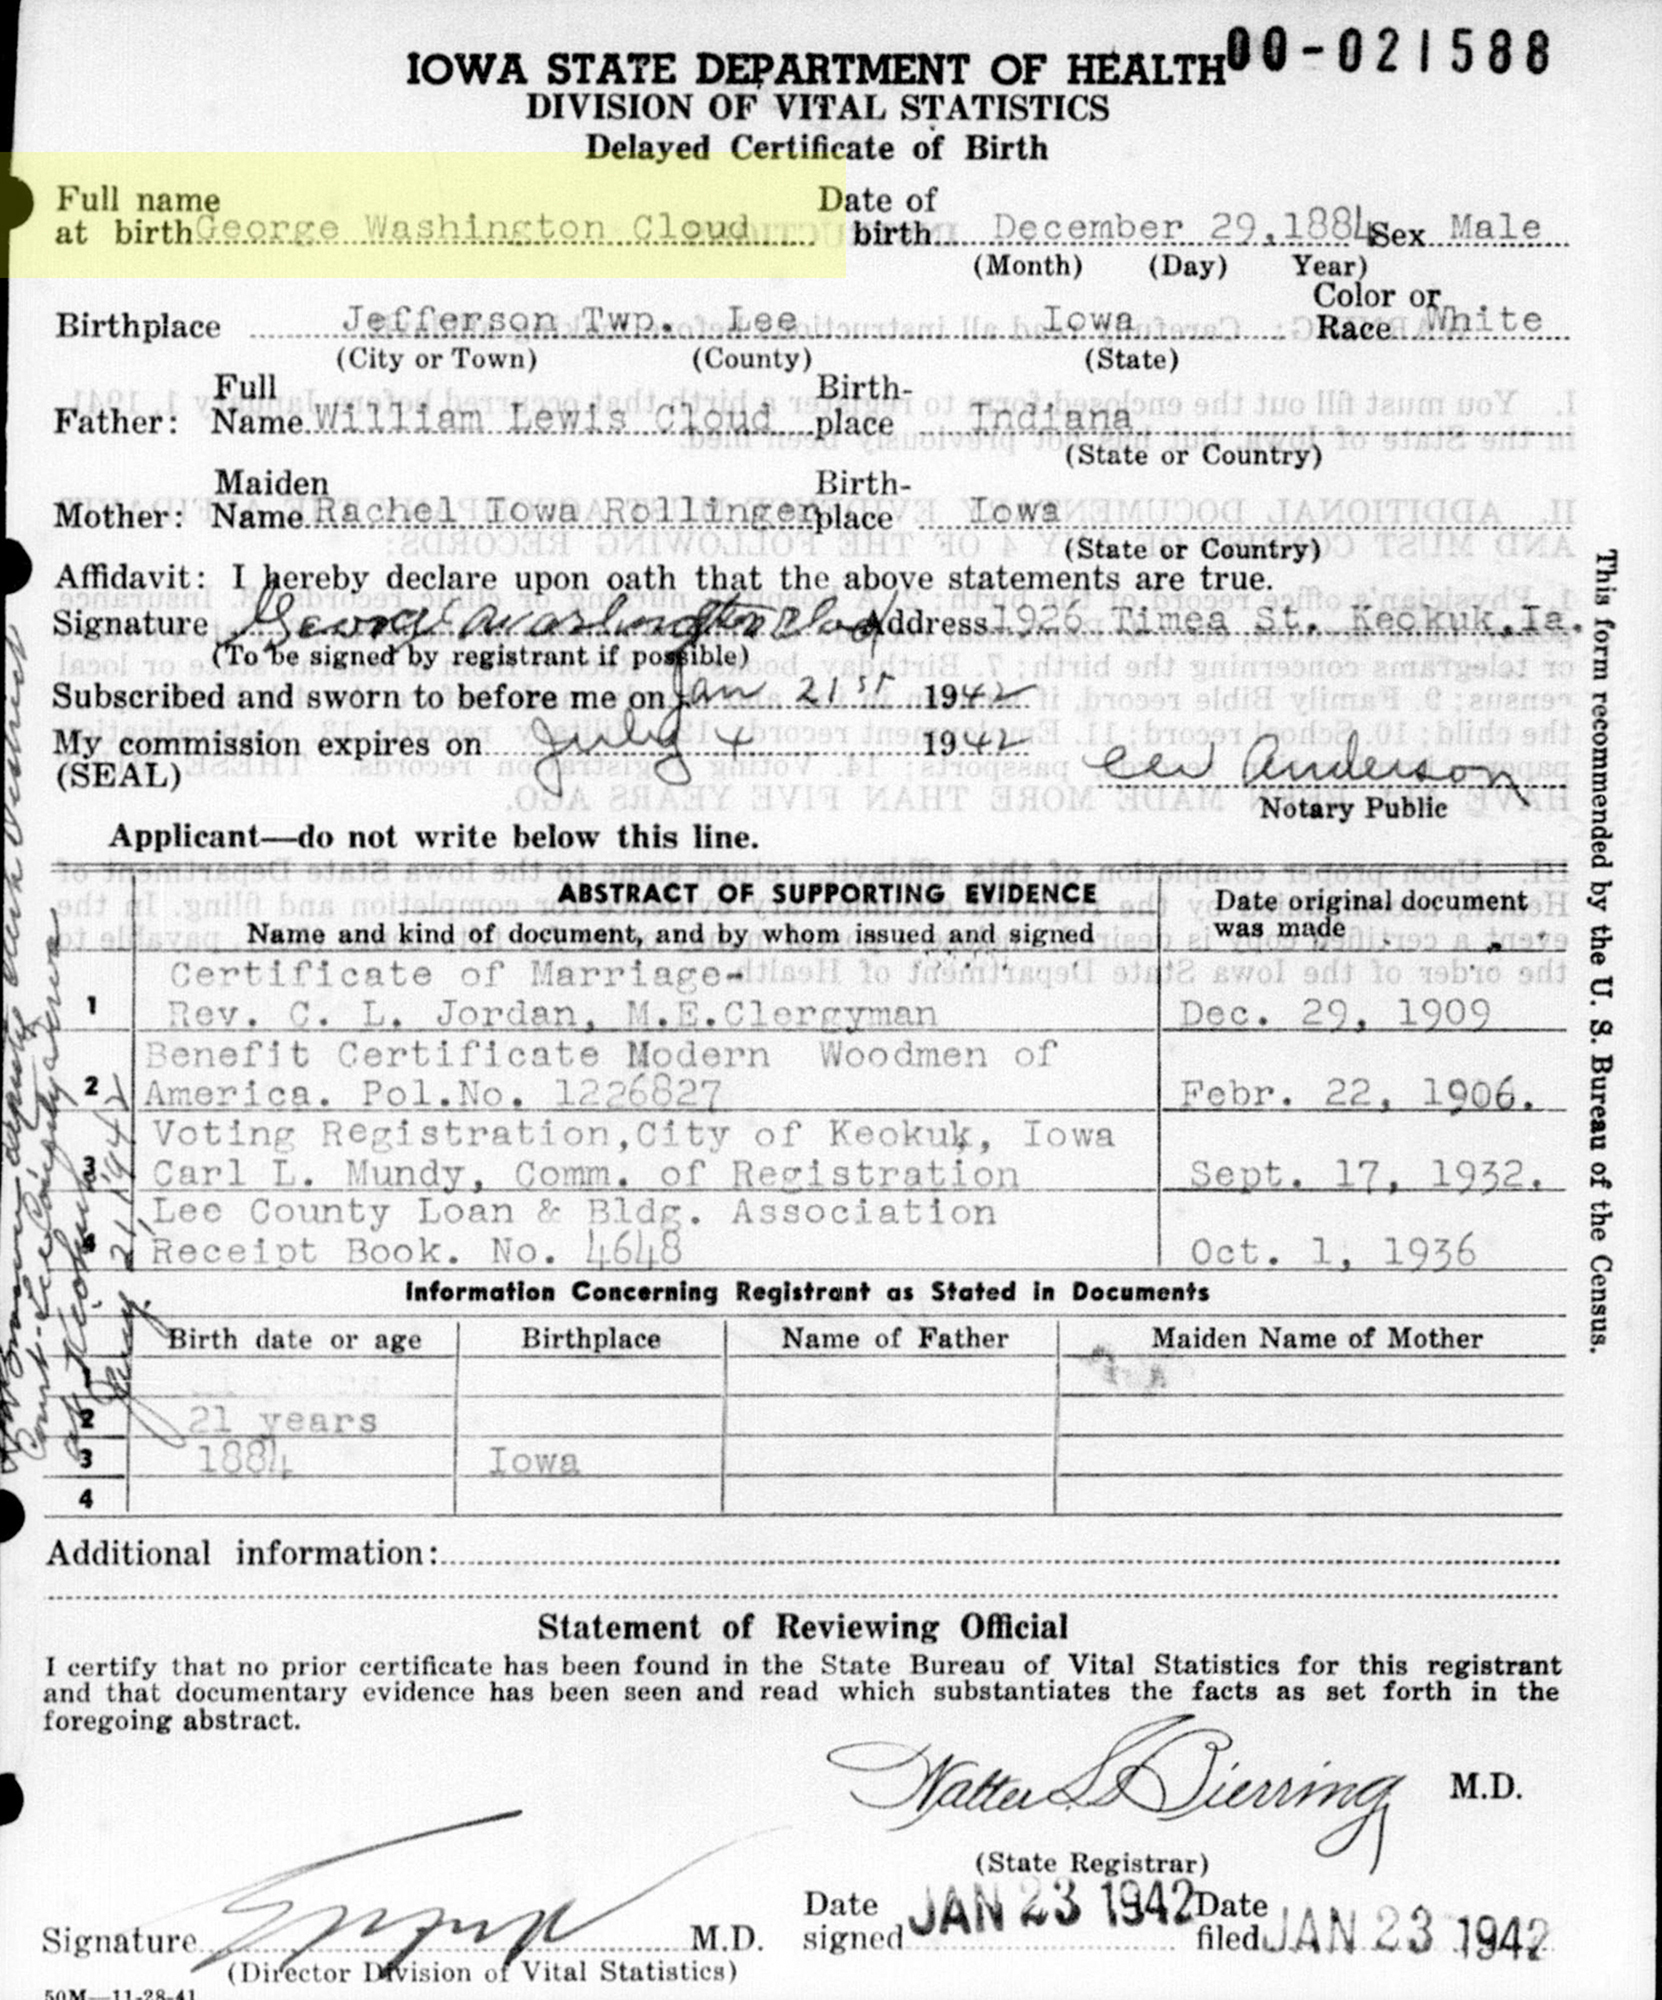 00-021588
IOWA STATE DEPARTMENT OF HEALTH
DIVISION OF VITAL STATISTICS
Delayed Certificate of Birth
Full name at birth George Washington Cloud Date of birth December 29, 1884 Sex Male
(Month) (Day) Year)
Birthplace Jefferson Twp. Lee Iowa Color or Race White
(City or Town) (County) (State)
Father: Full Name William Lewis Cloud Birth-place Indiana
(State or Country)
Mother: Maiden Name Rachel Iowa Rollinger Birth-place Iowa
(State or Country)
Affidavit: I hereby declare upon oath that the above statements are true.
Signature George Washington Cloud Address 1926 Timea St. Keokuk, Ia.
(To be signed by registrant if possible)
Subscribed and sworn to before me on Jan 21st 1942
My commission expires on July 4 1942 Anderson
(SEAL) Notary Public
Applicant—do not write below this line.
ABSTRACT OF SUPPORTING EVIDENCE
Name and kind of document, and by whom issued and signed Date original document was made
1 Certificate of Marriage-
Rev. C. L. Jordan, M.E.Clergyman Dec. 29, 1909
2 Benefit Certificate Modern Woodmen of
America. Pol.No. 1226827 Febr. 22, 1906.
3 Voting Registration,City of Keokuk, Iowa
Carl L. Mundy, Comm. of Registration Sept. 17, 1932.
4 Lee County Loan & Bldg. Association
Receipt Book. No. 4648 Oct. 1, 1936
Information Concerning Registrant as Stated in Documents
Birth date or age Birthplace Name of Father Maiden Name of Mother
1
2 21 years
3 1884 Iowa
4
Additional information:
Statement of Reviewing Official
I certify that no prior certificate has been found in the State Bureau of Vital Statistics for this registrant
and that documentary evidence has been seen and read which substantiates the facts as set forth in the
foregoing abstract.
Walter L Bierring M.D.
(State Registrar)
Signature M.D. Date signed JAN 23 1942 Date filed JAN 23 1942
(Director Division of Vital Statistics)
50M—11-28-41
This form recommended by the U. S. Bureau of the Census.
at Keokuk
21 1942